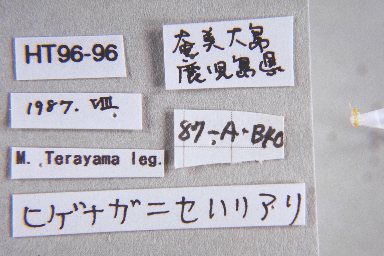 HT96-96
奄美大島
鹿児島県
1987. VIII.
87-A-BKO
M. Terayama leg.
ヒゲナガニセハリアリ